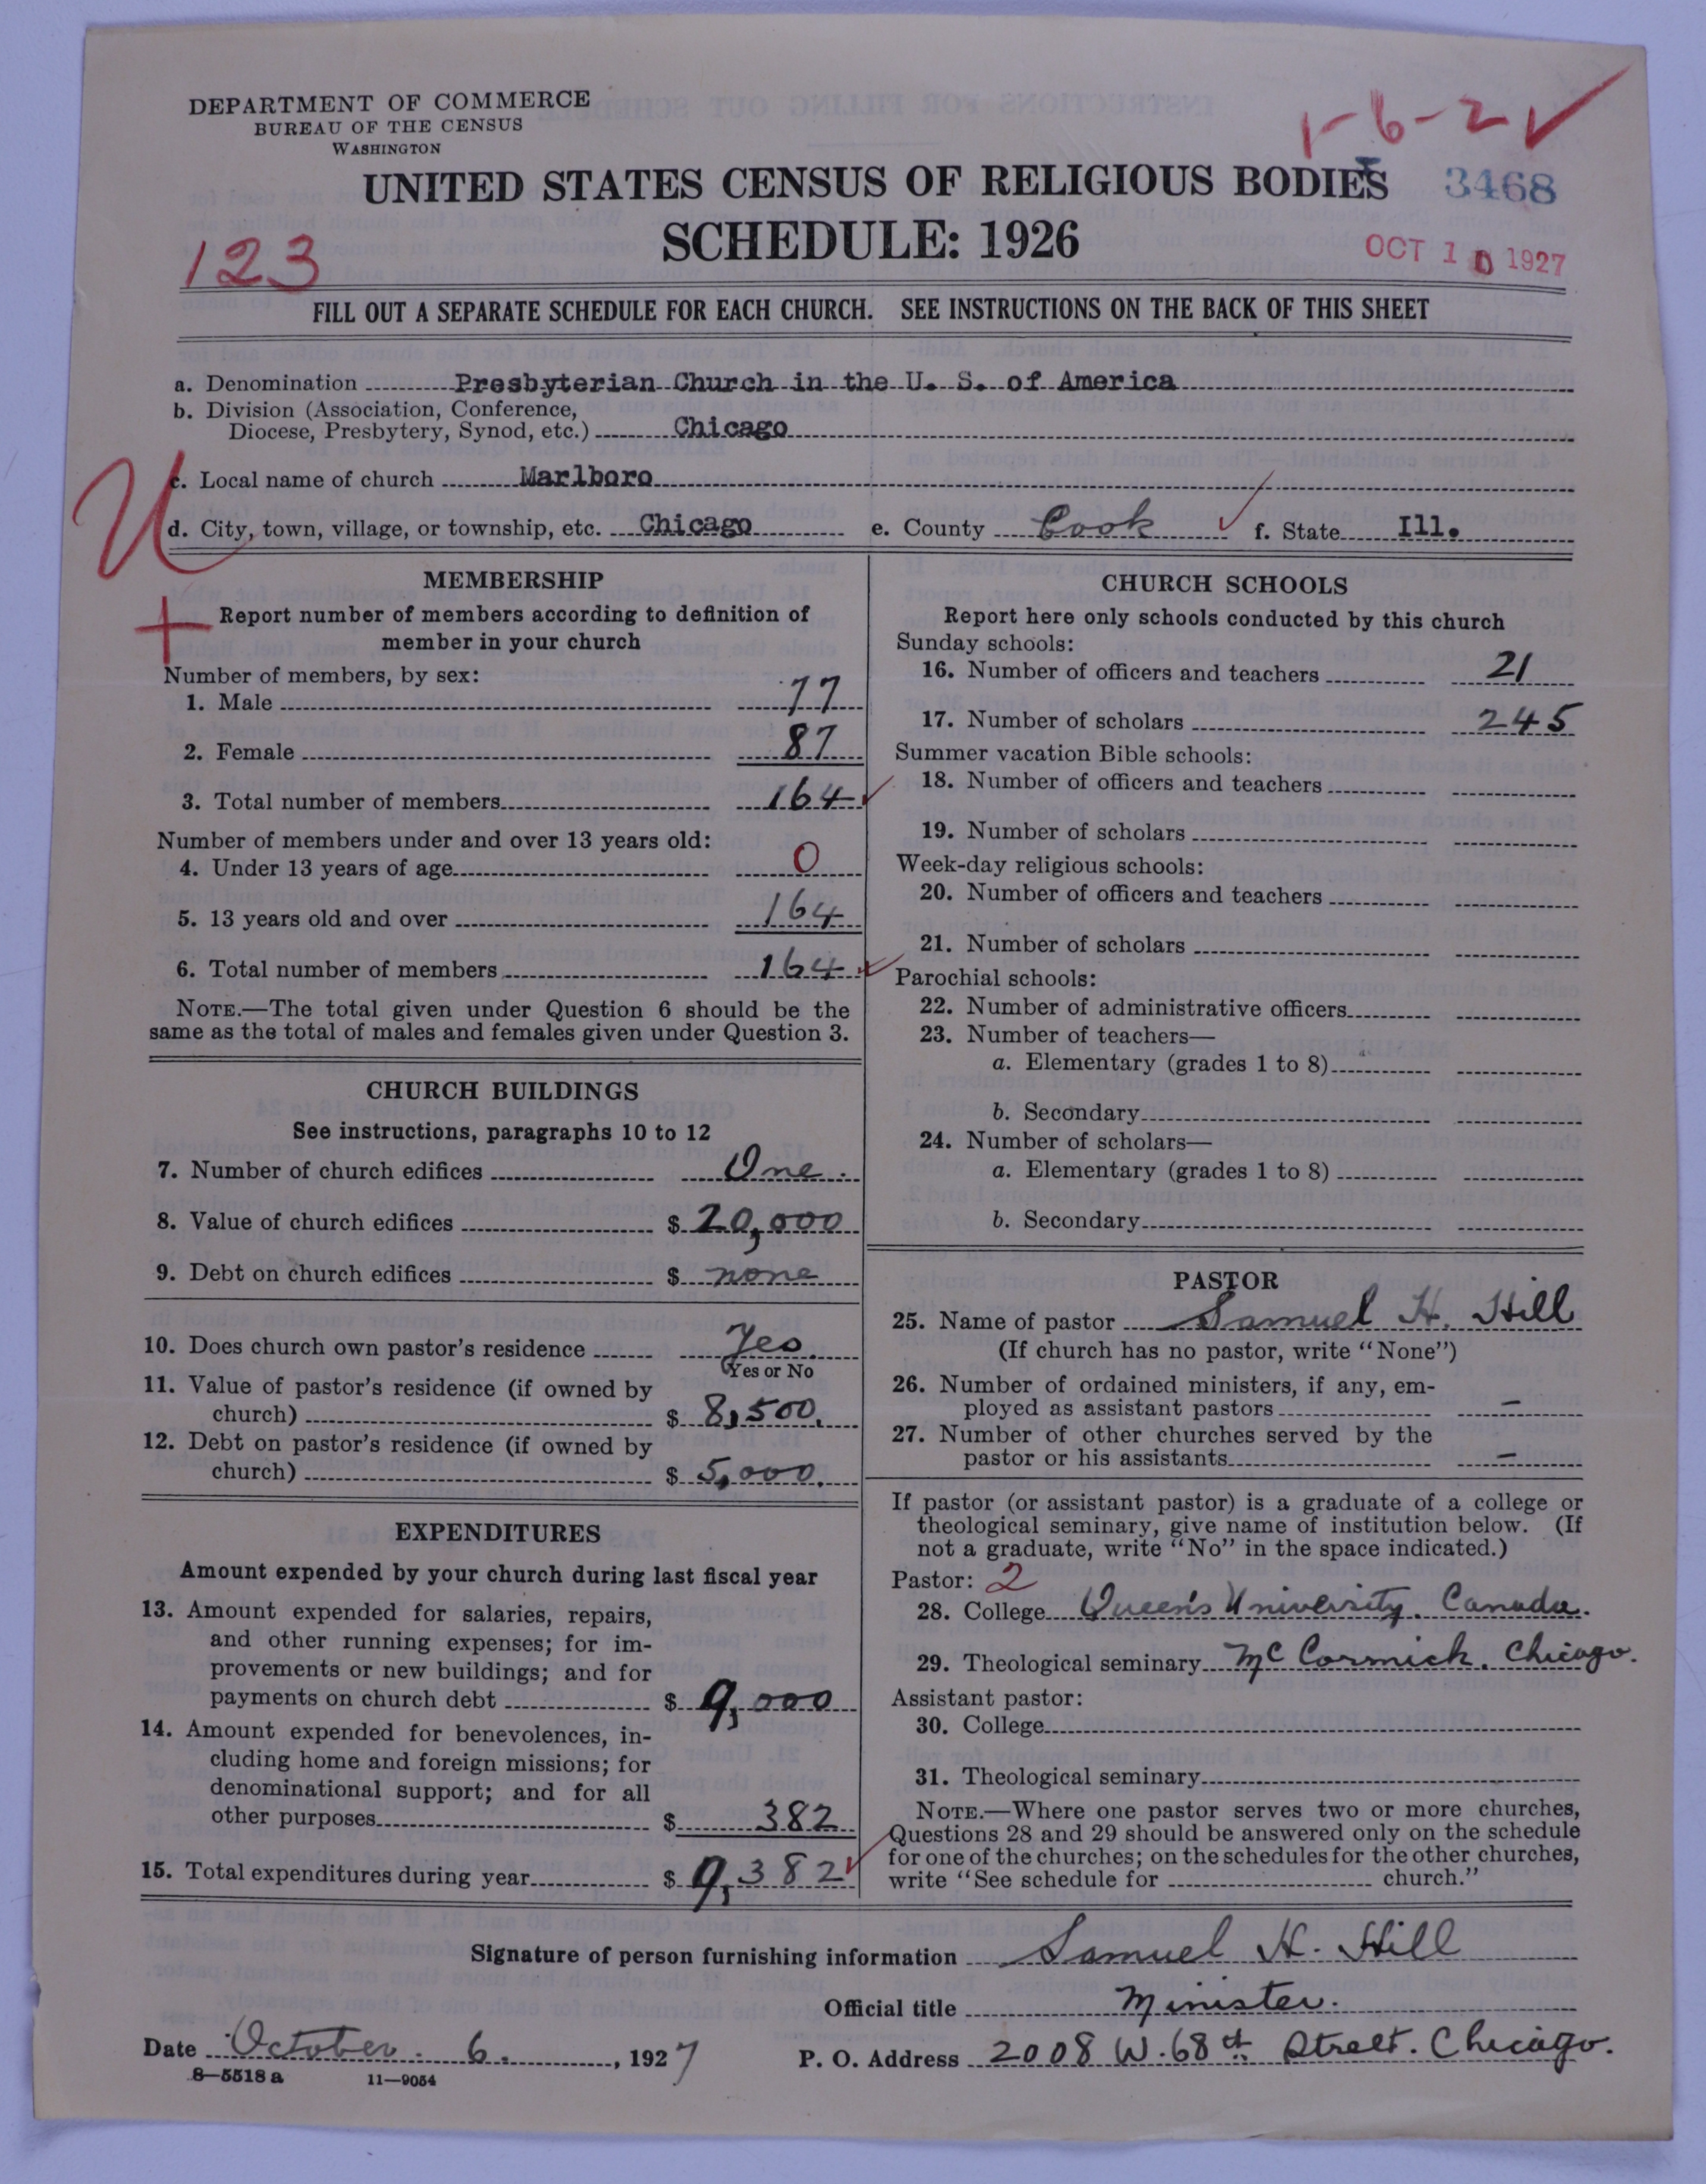 DEPARTMENT OF COMMERCE
BUREAU OF THE CENSUS
WASHINGTON
1-6-2
UNITED STATES CENSUS OF RELIGIOUS BODIES
3468
SCHEDULE: 1926
123
OCT 10 1927
FILL OUT A SEPARATE SCHEDULE FOR EACH CHURCH. SEE INSTRUCTIONS ON THE BACK OF THIS SHEET
a. Denomination Presbyterian Church in the U. S. of America
b. Division (Association, Conference,
Diocese, Presbytery, Synod, etc.) Chicago
U
c. Local name of church Marlboro
d. City, town, village, or township, etc. Chicago e. County Cook f. State Ill.
MEMBERSHIP
Report number of members according to definition of
member in your church
Number of members, by sex:
1. Male 77
2. Female 87
3. Total number of members 164
Number of members under and over 13 years old:
4. Under 13 years of age 0
5. 13 years old and over 164
6. Total number of members 164
NOTE.—The total given under Question 6 should be the
same as the total of males and females given under Question 3.
CHURCH BUILDINGS
See instructions, paragraphs 10 to 12
7. Number of church edifices One.
8. Value of church edifices $ 20,000
9. Debt on church edifices $ none
10. Does church own pastor's residence Yes
Yes or No
11. Value of pastor's residence (if owned by
church) $ 8,500.
12. Debt on pastor's residence (if owned by
church) $ 5,000.
EXPENDITURES
Amount expended by your church during last fiscal year
13. Amount expended for salaries, repairs,
and other running expenses; for im-
provements or new buildings; and for
payments on church debt $ 9,000
14. Amount expended for benevolences, in-
cluding home and foreign missions; for
denominational support; and for all
other purposes $ 382
15. Total expenditures during year $ 9,382
CHURCH SCHOOLS
Report here only schools conducted by this church
Sunday schools:
16. Number of officers and teachers 21
17. Number of scholars 245
Summer vacation Bible schools:
18. Number of officers and teachers
19. Number of scholars
Week-day religious schools:
20. Number of officers and teachers
21. Number of scholars
Parochial schools:
22. Number of administrative officers
23. Number of teachers—
a. Elementary (grades 1 to 8)
b. Secondary
24. Number of scholars—
a. Elementary (grades 1 to 8)
b. Secondary
PASTOR
25. Name of pastor Samuel H. Hill
(If church has no pastor, write "None")
26. Number of ordained ministers, if any, em-
ployed as assistant pastors –
27. Number of other churches served by the
pastor or his assistants –
If pastor (or assistant pastor) is a graduate of a college or
theological seminary, give name of institution below. (If
not a graduate, write "No" in the space indicated.)
Pastor: 2
28. College Queen's University. Canada.
29. Theological seminary McCormick. Chicago.
Assistant pastor:
30. College
31. Theological seminary
NOTE.—Where one pastor serves two or more churches,
Questions 28 and 29 should be answered only on the schedule
for one of the churches; on the schedules for the other churches,
write "See schedule for church."
Signature of person furnishing information Samuel H. Hill
Official title Minister.
Date October 6, 1927 P. O. Address 2008 W. 68th Street. Chicago.
8—5518 a 11—9054